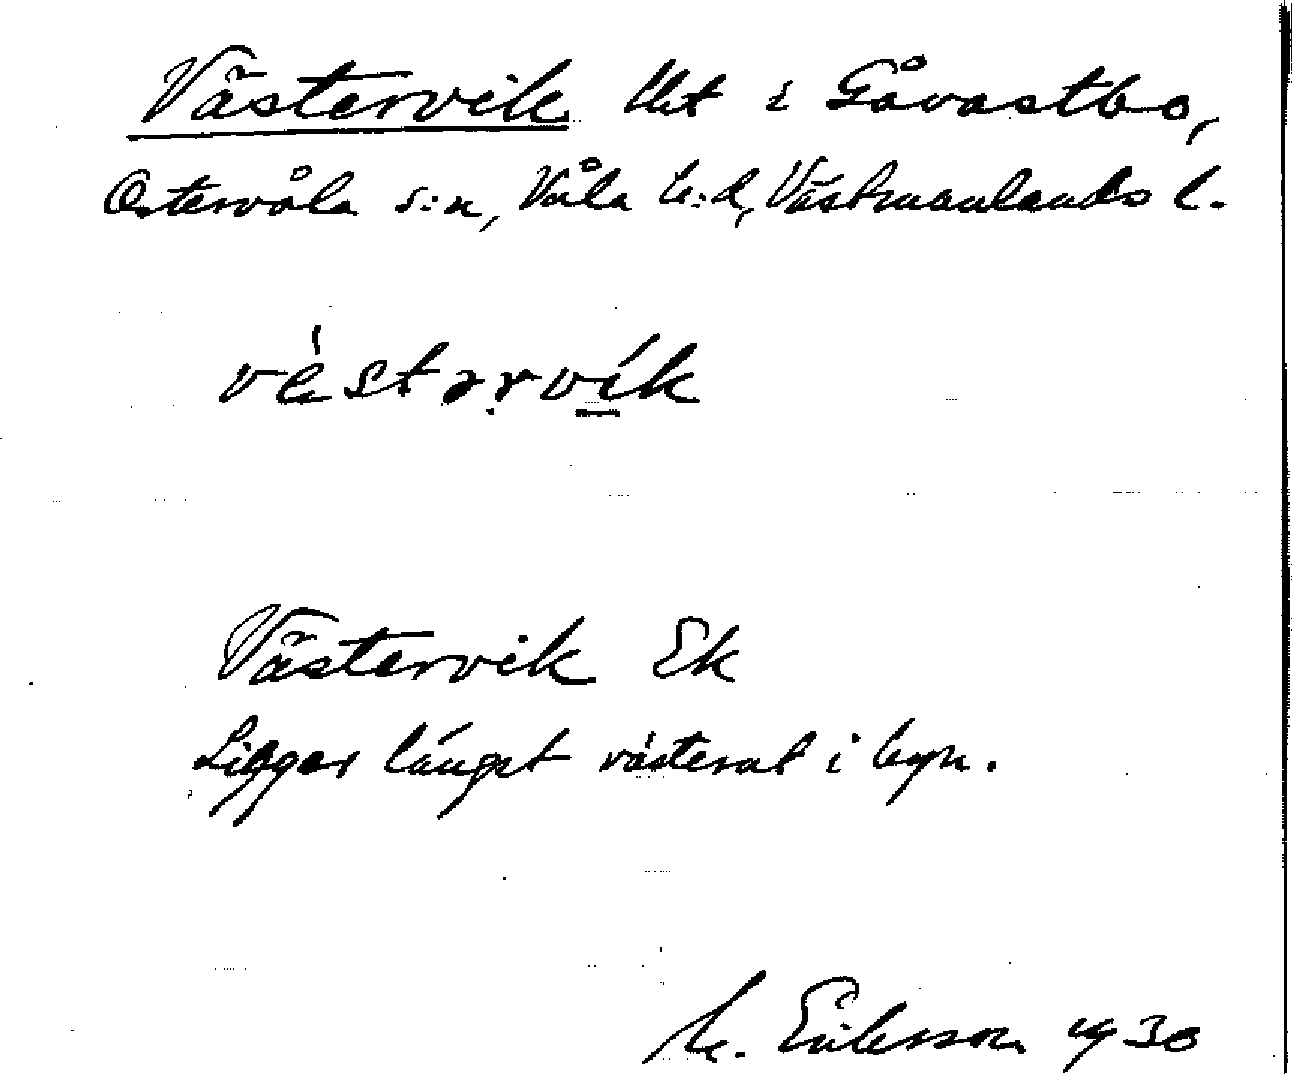 Västervik Ut i Gåvastbo,
Östervåla s:n, Våla h:d, Västmanlands l.
västərvik
Västervik Ek
Ligger längst västerut i byn.
M. Eriksson 1930